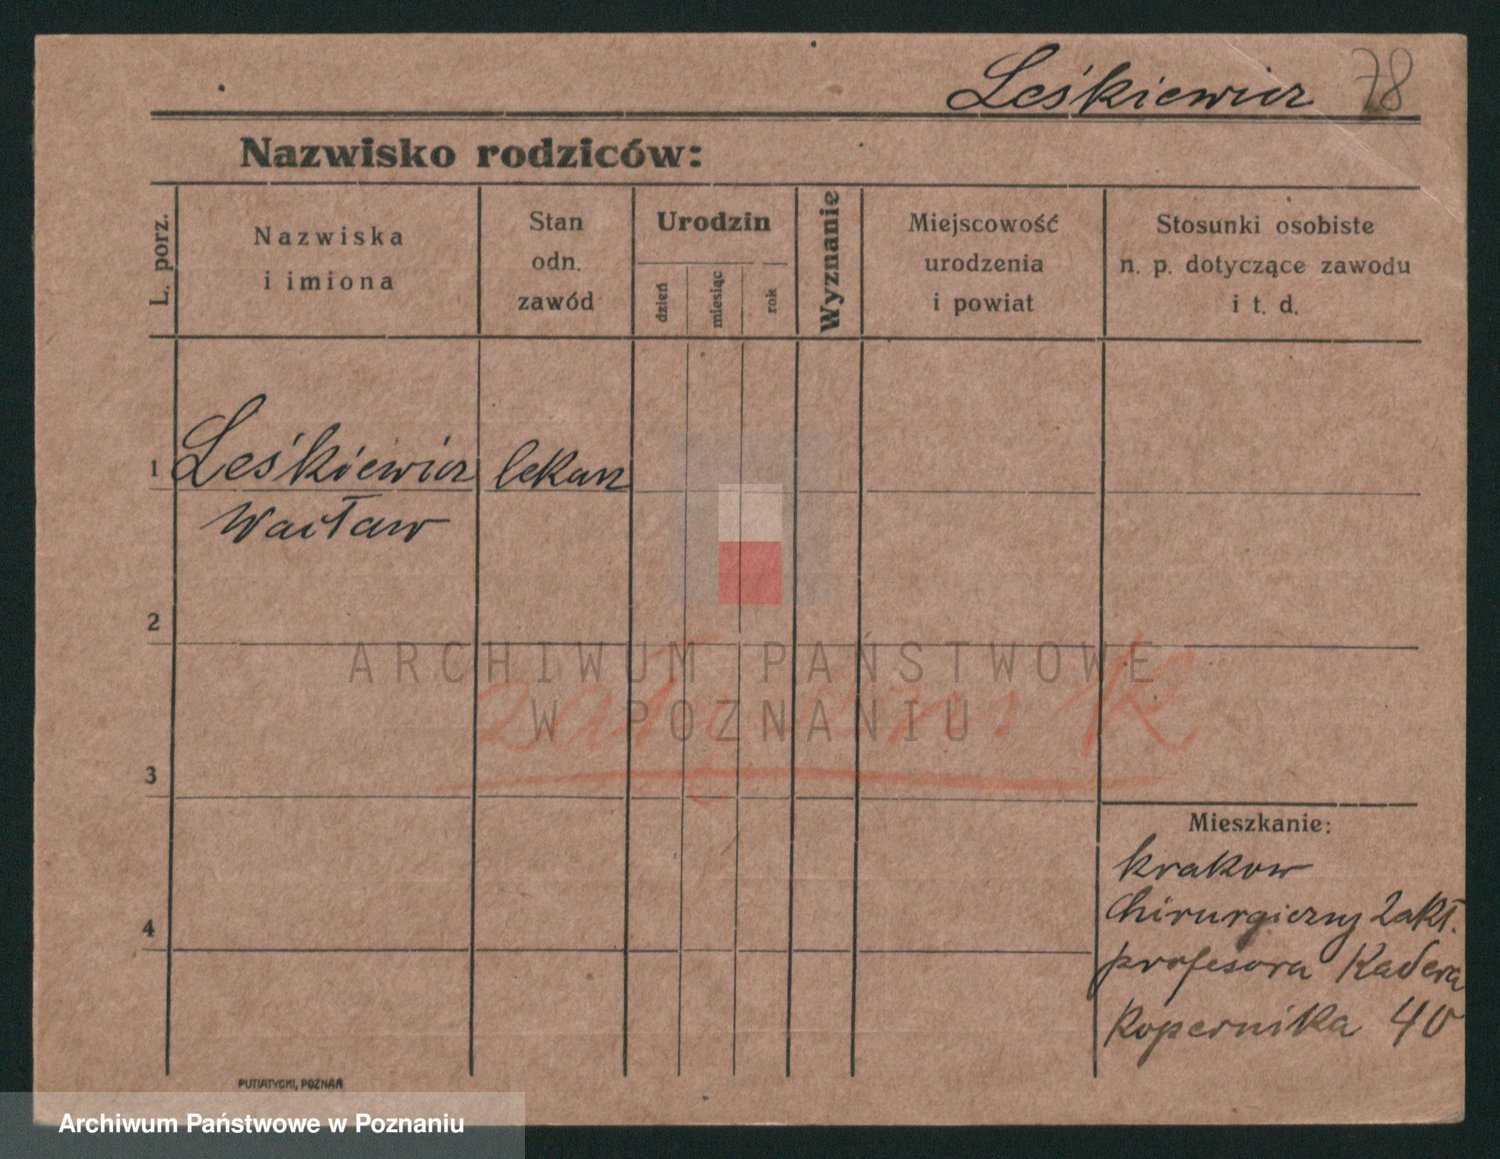 Leśkiewicz 78
Nazwisko rodziców:
L. porz.
Nazwiska
i imiona
Stan
odn.
zawód
Urodzin
dzień
miesiąc
rok
Wyznanie
Miejscowość
urodzenia
i powiat
Stosunki osobiste
n. p. dotyczące zawodu
i t. d.
1 Leśkiewicz lekarz
Wacław
2
ARCHIWUM PAŃSTWOWE
W POZNANIU
3
Mieszkanie:
Krakow
Chirurgiczny Zakł.
profesora Kadera
Kopernika 40
4
PUTIATYCKI, POZNAŃ
Archiwum Państwowe w Poznaniu